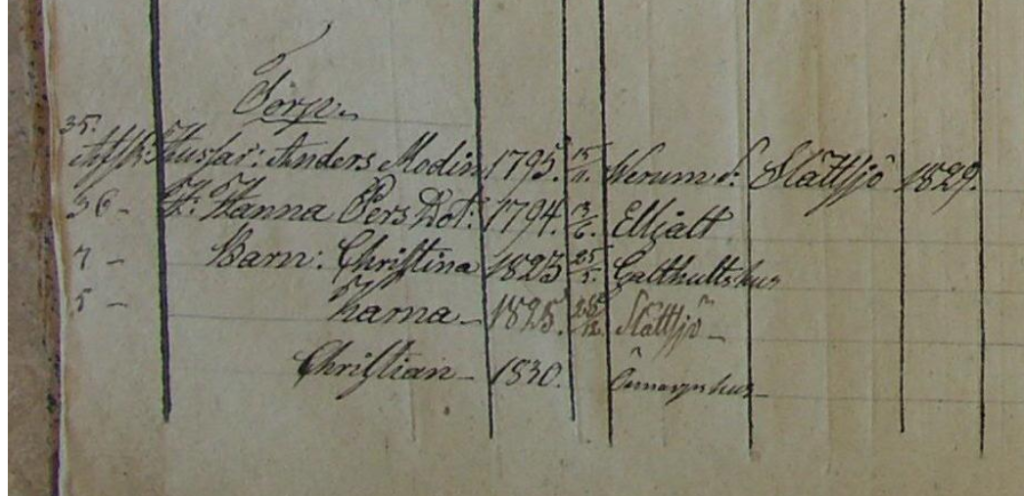 Torp
35. Afsk: Husar: Anders Modin 1795. 15/11. Werum s: Slättsjö 1829.
36 - H: Hanna Pers Dot: 1794. 3/6. Elljalt
7 - Barn: Christina 1823 25/5. Galthultshus
5 - Hanna - 1825. 25/12. Slättsjö -
Christian - 1830.